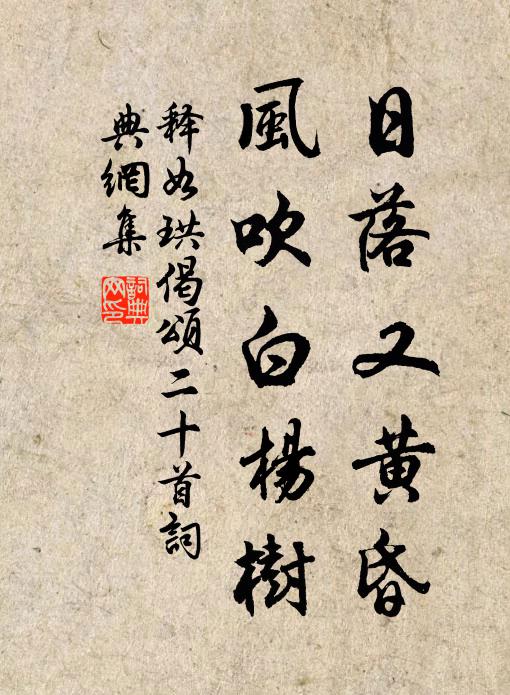 日落又黄昏
風吹白楊樹
释如珙偈頌二十首詞
典網集
詞典
网印